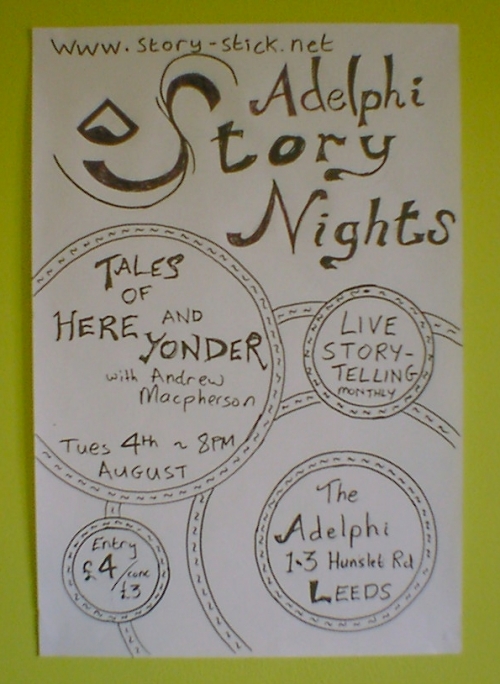 www.story-stick.net
Adelphi
Story
Nights
TALES
OF
HERE AND
YONDER
with Andrew
Macpherson
Tues 4th ~ 8PM
AUGUST
LIVE
STORY-
TELLING
MONTHLY
Entry
£4/conc
£3
The
Adelphi
1-3 Hunslet Rd
LEEDS